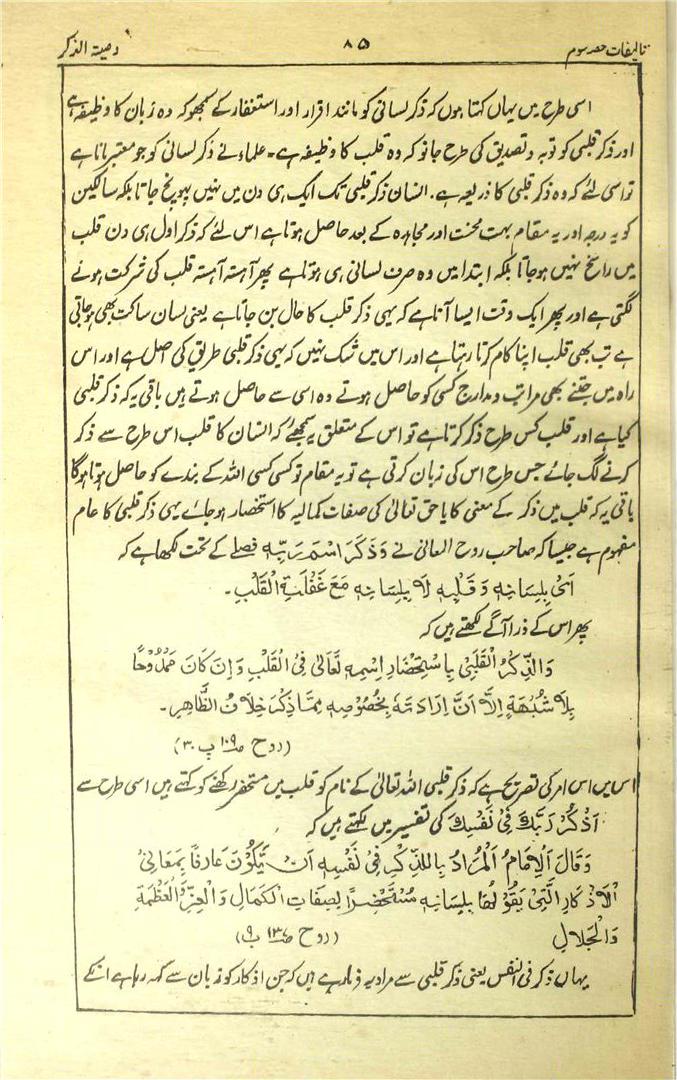 تالیفات حصہ سوم ۸۵ وصیۃ الذکر
اسی طرح میں یہاں کہتا ہوں کہ ذکر لسانی کو مانند اقرار اور استغفار کے سمجھو کہ وہ زبان کا وظیفہ ہے
اور ذکر قلبی کو توبہ و تصدیق کی طرح جانو کہ وہ قلب کا وظیفہ ہے۔ علماء نے ذکر لسانی کو جو معتبر مانا ہے
تو اسی لئے کہ وہ ذکر قلبی کا ذریعہ ہے۔ انسان ذکر قلبی تک ایک ہی دن میں نہیں پہونچ جاتا بلکہ سالکین
کو یہ درجہ اور یہ مقام بہت محنت اور مجاہدہ کے بعد حاصل ہوتا ہے اس لئے کہ ذکر اول ہی دن قلب
میں راسخ نہیں ہو جاتا بلکہ ابتدا میں وہ صرف لسانی ہی ہوتا ہے پھر آہستہ آہستہ قلب کی شرکت ہونے
لگتی ہے اور پھر ایک وقت ایسا آتا ہے کہ یہی ذکر قلب کا حال بن جاتا ہے یعنی لسان ساکت بھی ہو جاتی
ہے تب بھی قلب اپنا کام کرتا رہتا ہے اور اس میں شک نہیں کہ یہی ذکر قلبی طریق کی اصل ہے اور اس
راہ میں جتنے بھی مراتب و مدارج کسی کو حاصل ہوتے وہ اسی سے حاصل ہوتے ہیں باقی یہ کہ ذکر قلبی
کیا ہے اور قلب کس طرح ذکر کرتا ہے تو اس کے متعلق یہ سمجھئے کہ انسان کا قلب اس طرح سے ذکر
کرنے لگ جائے جس طرح اس کی زبان کرتی ہے تو یہ مقام تو کسی کسی اللہ کے بندے کو حاصل ہوتا ہوگا
باقی یہ کہ قلب میں ذکر کے معنی کا یا حق تعالیٰ کی صفات کمالیہ کا استحضار ہو جائے یہی ذکر قلبی کا عام
مفہوم ہے جیسا کہ صاحب روح المعانی نے وَذَكَرَ اسْمَ رَبِّهٖ فصلے کے تحت لکھا ہے کہ
اَیْ بِلِسَانِهٖ وَقَلْبِهٖ لَا بِلِسَانِهٖ مَعَ غَفْلَةِ الْقَلْبِ۔
پھر اس کے ذرا آگے لکھتے ہیں کہ
وَالذِّكْرُ الْقَلْبِیُّ بِاسْتِحْضَارِ اِسْمِهٖ تَعَالٰى فِی الْقَلْبِ وَاِنْ كَانَ مَمْدُوْحًا
بِلَا شُبْهَةٍ اِلَّا اَنَّ اِرَادَتَهٗ بِخُصُوْصِهٖ مِمَّا ذُكِرَ خِلَافُ الظَّاهِرِ۔
(روح ص۱۰۹ پ ۳۰)
اس میں اس امر کی تصریح ہے کہ ذکر قلبی اللہ تعالیٰ کے نام کو قلب میں مستحضر رکھنے کو کہتے ہیں اسی طرح سے
اُذْكُرْ رَبَّكَ فِیْ نَفْسِكَ کی تفسیر میں لکھتے ہیں کہ
وَقَالَ الْاِمَامُ اَلْمُرَادُ بِالذِّكْرِ فِیْ نَفْسِهٖ اَنْ يَّكُوْنَ عَارِفًا بِمَعَانِی
الْاَذْكَارِ الَّتِیْ يَقُوْلُهَا بِلِسَانِهٖ مُسْتَحْضِرًا لِصِفَاتِ الْكَمَالِ وَالْعِزِّ وَالْعَظْمَةِ
وَالْجَلَالِ (روح ص۱۳۷ پ۹)
یہاں ذکر فی النفس یعنی ذکر قلبی سے مراد یہ فرما رہے ہیں کہ جن اذکار کو زبان سے کہہ رہا ہے انکے